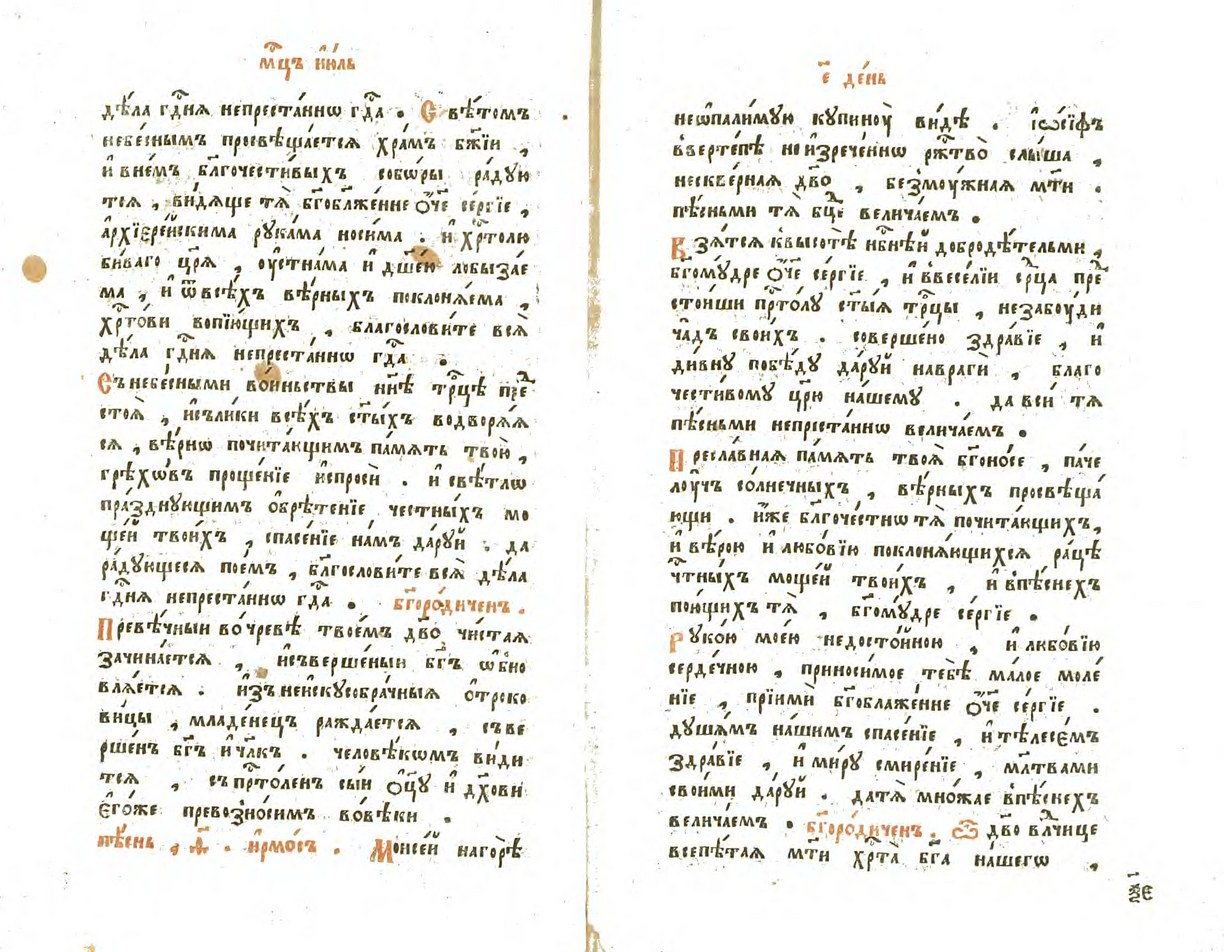 мц҇ъ і҆ю́ль
дѣ́ла гдⷭ҇ня непреста́ннѡ гдⷭ҇а . Свѣ́томъ
небе́снымъ просвѣща́етсѧ хра́мъ бж҃їи ,
и҆ в не́мъ бл҃гочести́выхъ собѡ́ры ра́дую
тсѧ , ви́дѧще тѧ̀ бг҃облаже́нне ѻ҆́ч҃е се́ргїе ,
а҆рхїере́йскима рука́ма носи́ма . и҆ хрⷭ҇толю
би́ваго цр҃ѧ̀ , ᲂу҆стна́ма и҆ дш҃е́ю лобыза́е
ма , и҆ ѿ всѣ́хъ вѣ́рныхъ поклонѧ́ема ,
хрⷭ҇то́ви вопїю́щихъ , благослови́те всѧ̀
дѣ́ла гдⷭ҇ня непреста́ннѡ гдⷭ҇а .
Съ небе́сными во́иньствы нн҃ѣ трⷪ҇цѣ пре
стоѧ̀ , и҆ съ ли́ки всѣ́хъ ст҃ы́хъ водворѧ́ѧ
сѧ , вѣ́рнѡ почита́ющимъ па́мѧть твою̀ ,
грѣхѡ́въ проще́нїе и҆спросѝ . и҆ свѣ́тлѡ
пра́зднующимъ ѻ҆брѣ́тенїе че́стныхъ мо
ще́й твои́хъ , спасе́нїе на́мъ да́руй . да
ра́дующесѧ пое́мъ , бл҃гослови́те всѧ̀ дѣ́ла
гдⷭ҇ня непреста́ннѡ гдⷭ҇а . бг҃оро́диченъ .
Превѣ́чныи во чре́вѣ твое́мъ дв҃о чи́стаѧ
зачина́етсѧ , и҆ съверше́ныи бг҃ъ ѡ҆бно
влѧ́етсѧ . и҆з̾ неискусобра́чныѧ ѻ҆троко
ви́цы , младе́нецъ ражда́етсѧ , съве
рше́нъ бг҃ъ и҆ чл҃къ . человѣ́кѡмъ ви́ди
тсѧ , съ прⷭ҇то́ленъ сы́и ѻ҆ц҃у̀ и҆ дх҃ови
є҆го́же превозно́симъ во вѣ́ки .
пѣ́снь , ѳ҃ . і҆рмо́съ . Моисе́й на горѣ̀
е҃ де́нь
неѡпали́мую купинᲂу̀ ви́дѣ . і҆ѡ́сїфъ
в верте́пѣ неизрече́ннѡ рж҇тво̀ слы́ша ,
нескве́рнаѧ дв҃о , безмᲂу́жнаѧ мт҃и .
пѣ́сньми тѧ̀ бцⷣе велича́емъ .
Взѧ́тсѧ к высотѣ̀ нбⷭ҇нѣй добродѣ́тельми ,
бг҃ому́дре ѻ҆́ч҃е се́ргїе , и҆ в весе́лїи срⷣца пре
стои́ши прⷭ҇то́лу ст҃ы́ѧ трⷪ҇цы , не забᲂу́ди
ча́дъ свои́хъ . соверше́но здра́вїе , и҆
ди́вну побѣ́ду да́руй на враги̂ , благо
чести́вому цр҃ю̀ на́шему . да вси́ тѧ
пѣ́сньми непреста́ннѡ велича́емъ .
Пресла́внаѧ па́мѧть твоѧ̀ бг҃оно́се , па́че
лᲂу́чъ со́лнечныхъ , вѣ́рныхъ просвѣща́
ющи . и҆́же бл҃гоче́стнѡ тѧ̀ почита́ющихъ ,
и҆ вѣ́рою и҆ любо́вїю поклонѧ́ющихсѧ ра́цѣ
чⷭ҇тны́хъ моще́й твои́хъ , и҆ в пѣ́снехъ
пою́щихъ тѧ̀ , бг҃ому́дре се́ргїе .
Руко́ю мое́ю недосто́йною , и҆ любо́вїю
серде́чною , приноси́мое тебѣ̀ ма́лое моле́
нїе , прїимѝ бг҃облаже́нне ѻ҆́ч҃е се́ргїе .
душа́мъ на́шимъ спасе́нїе , и҆ тѣлесе́мъ
здра́вїе , и҆ ми́ру смире́нїе , мл҃твами
свои́ми да́руй . да тѧ̀ мно́жае в пѣ́снехъ
велича́емъ . бг҃оро́диченъ . Ѽ дв҃о влⷣчице
всепѣ́таѧ мт҃и хрⷭ҇та̀ бг҃а на́шегѡ ,